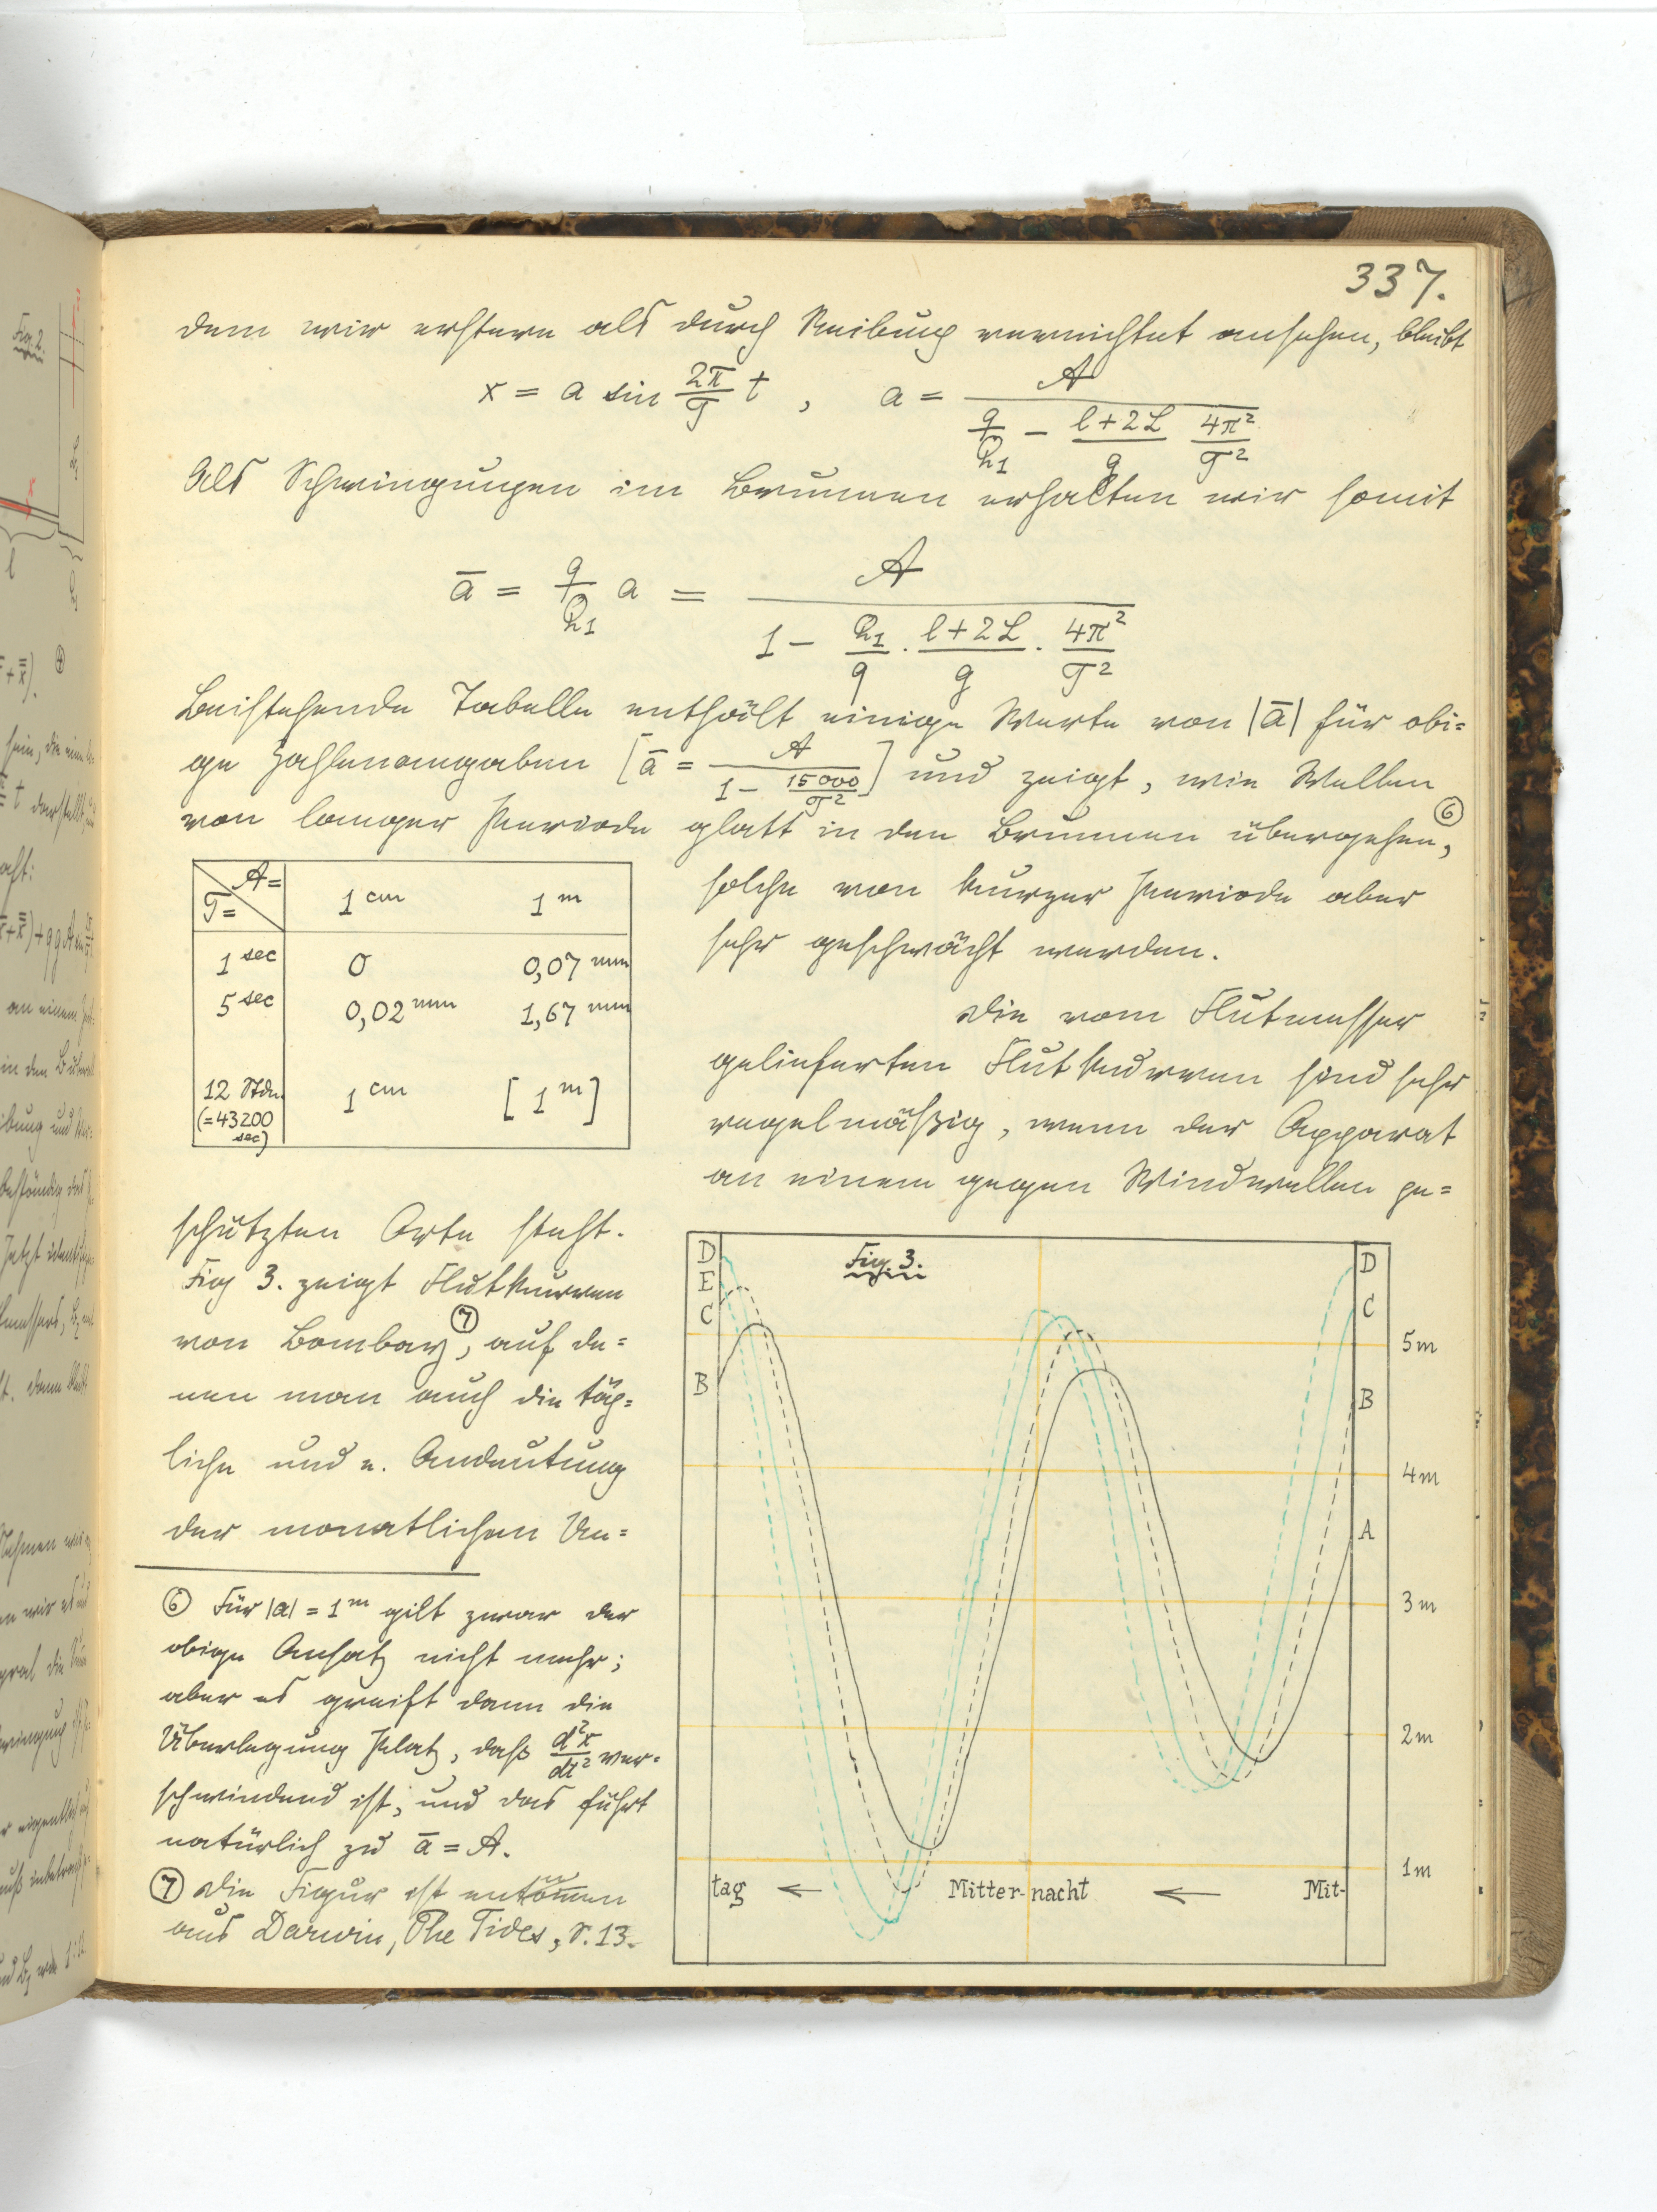 337.
dem wir erstere als durch Reibung vernichtet ansehen, bleibt
x = a sin 2π/T t , a = A / (q/Q₁ − (l+2L)/g 4π²/T²)
Als Schwingungen im Brunnen erhalten wir somit
ā = q/Q₁ a = A / (1 − Q₁/q · (l+2L)/g · 4π²/T²)
Beistehende Tabelle enthält einige Werte von |ā| für obi=
ge Zahlenangaben [ā = A / (1 − 15000/T²)] und zeigt, wie Wellen
von langer Periode glatt in den Brunnen übergehen, ⑥
solche von kurzer Periode aber
sehr geschwächt werden.
A=
T=
1 cm 1 m
1 sec 0 0,07 mm
5 sec 0,02 mm 1,67 mm
12 Stdn. 1 cm [1 m]
(=43200
sec)
Die vom Flutmesser
gelieferten Flutkurven sind sehr
regelmäßig, wenn der Apparat
an einem gegen Windwellen ge=
schützten Orte steht.
Fig 3. zeigt Flutkurven
von Bombay ⑦, auf de=
nen man auch die täg=
liche und e. Andeutung
der monatlichen Un=
⑥ Für |a| = 1 m gilt zwar der
obige Ansatz nicht mehr;
aber es greift dann die
Überlegung Platz, daß d²x/dt² ver=
schwindend ist, und das führt
natürlich zu ā = A.
⑦ Die Figur ist entnom̄en
aus Darwin, The Tides, S. 13.
Fig. 3.
D
E
C
B
D
C
B
A
5m
4m
3m
2m
1m
tag ← Mitternacht ← Mit-
Fig. 2.
l